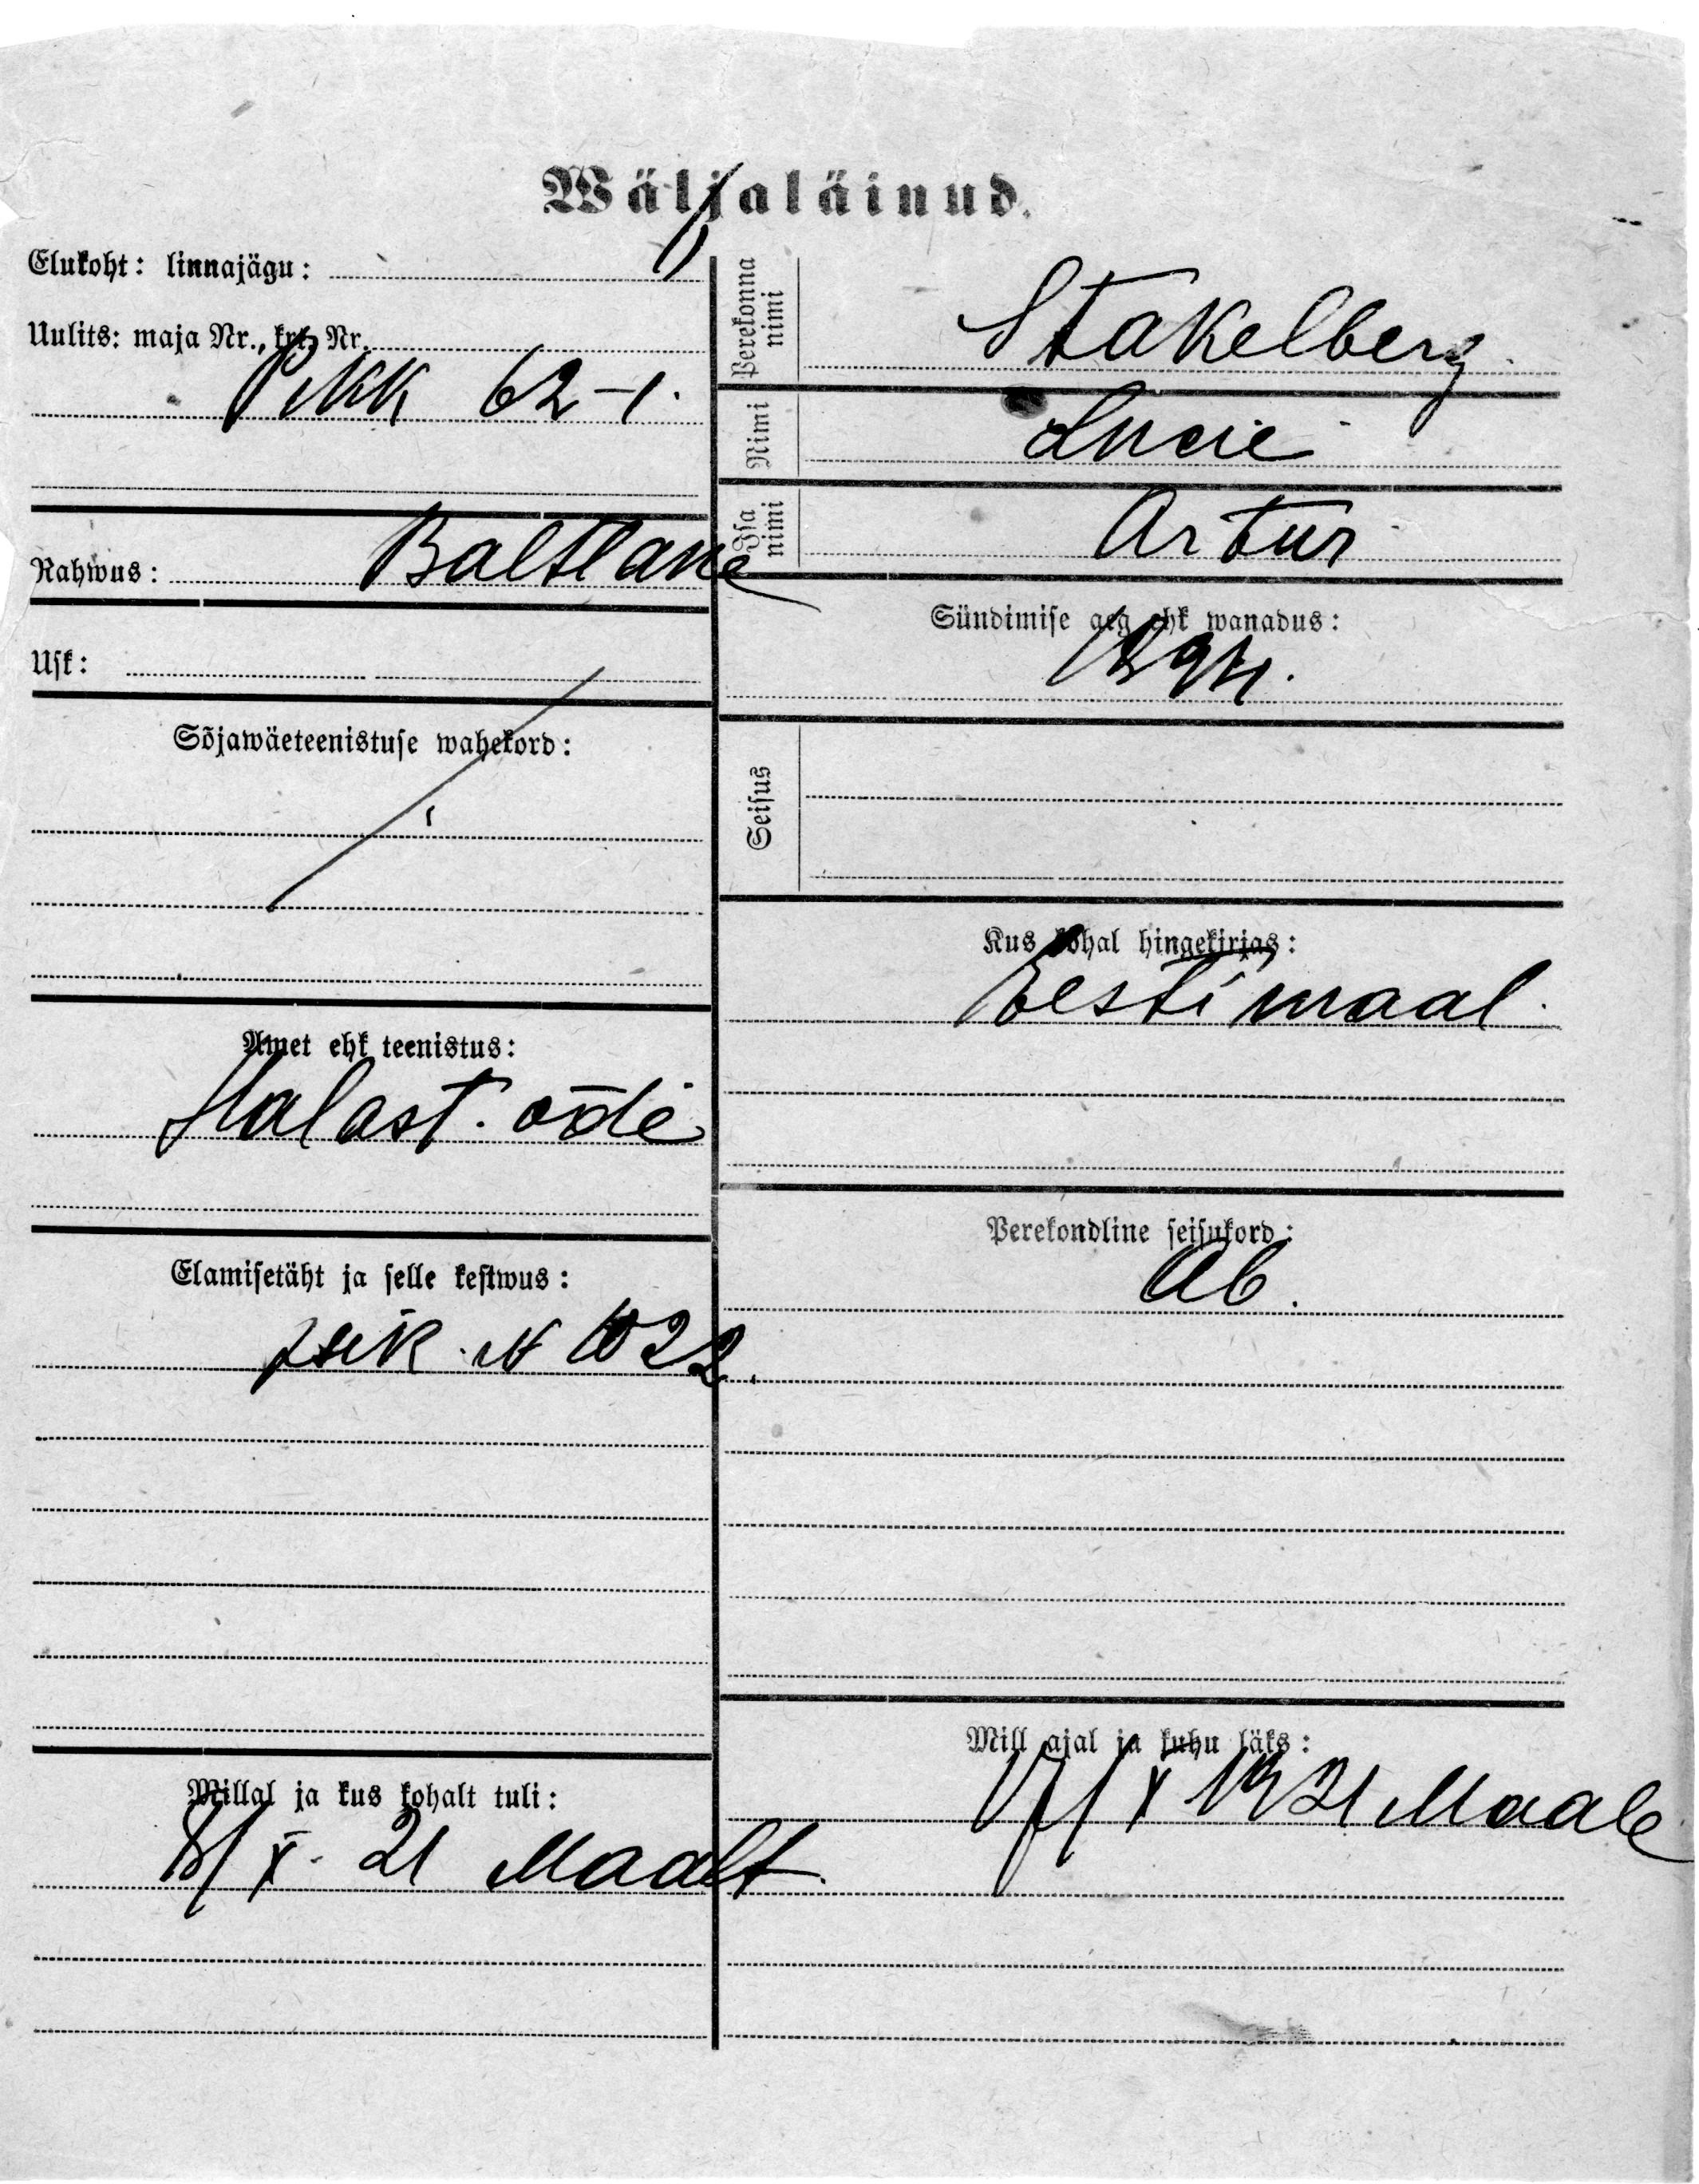 Wäljaläinud.
Elukoht: linnajägu:
Uulits: maja Nr., krt. Nr.
Pikk 62-1.
Rahwus: Baltlane
Usk:
Sõjawäeteenistuse wahekord:
Amet ehk teenistus:
Halast. õde
Elamisetäht ja selle kestwus:
isik. N 1022.
Millal ja kus kohalt tuli:
X. 21 Maalt
Perekonna nimi
Stakelberg
Nimi
Lucie
Isa nimi
Artur
Sündimise aeg ehk wanadus:
Seisus
Kus kohal hingekirjas:
Eestimaal.
Perekondline seisukord:
Ab.
Mill ajal ja kuhu läks:
17/X 1921 Maale